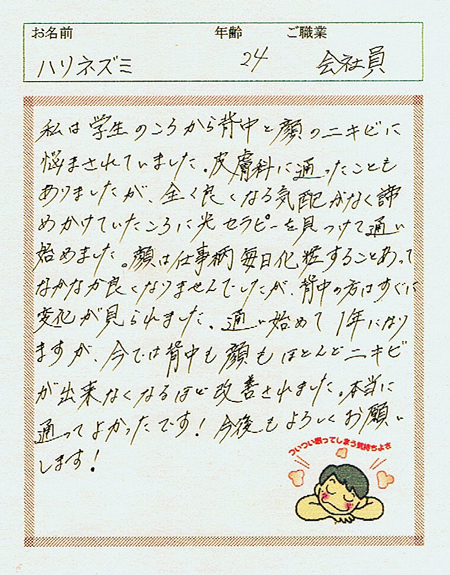 お名前 年齢 ご職業
ハリネズミ 24 会社員
私は学生のころから背中と顔のニキビに
悩まされていました。皮膚科に通ったことも
ありましたが、全く良くなる気配がなく諦
めかけていたころに光セラピーを見つけて通い
始めました。顔は仕事柄毎日化粧することあって
なかなか良くなりませんでしたが、背中の方はすぐに
変化が見られました。通い始めて1年になり
ますが、今では背中も顔もほとんどニキビ
が出来なくなるほど改善されました。本当に
通ってよかったです!今後もよろしくお願い
します!
ついつい眠ってしまう気持ちよさ